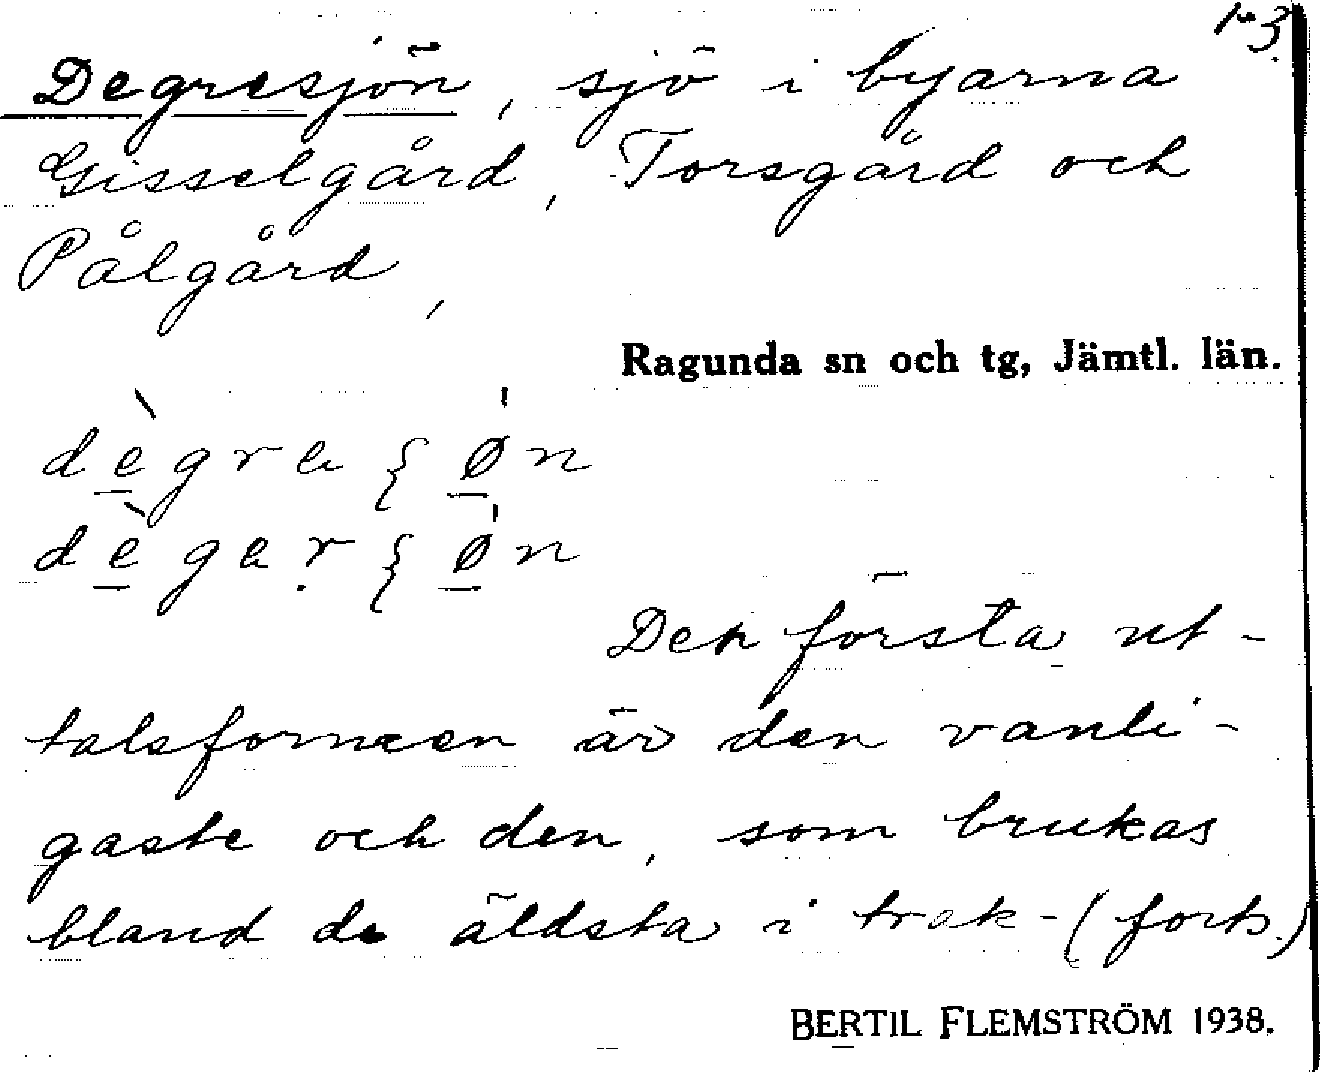 1-3.
Degresjön, sjö i byarna
Gisselgård, Torsgård och
Pålgård,
Ragunda sn och tg, Jämtl. län.
Den första ut-
talsformen är den vanli-
gaste och den, som brukas
bland de äldsta i trak- (forts.)
BERTIL FLEMSTRÖM 1938.